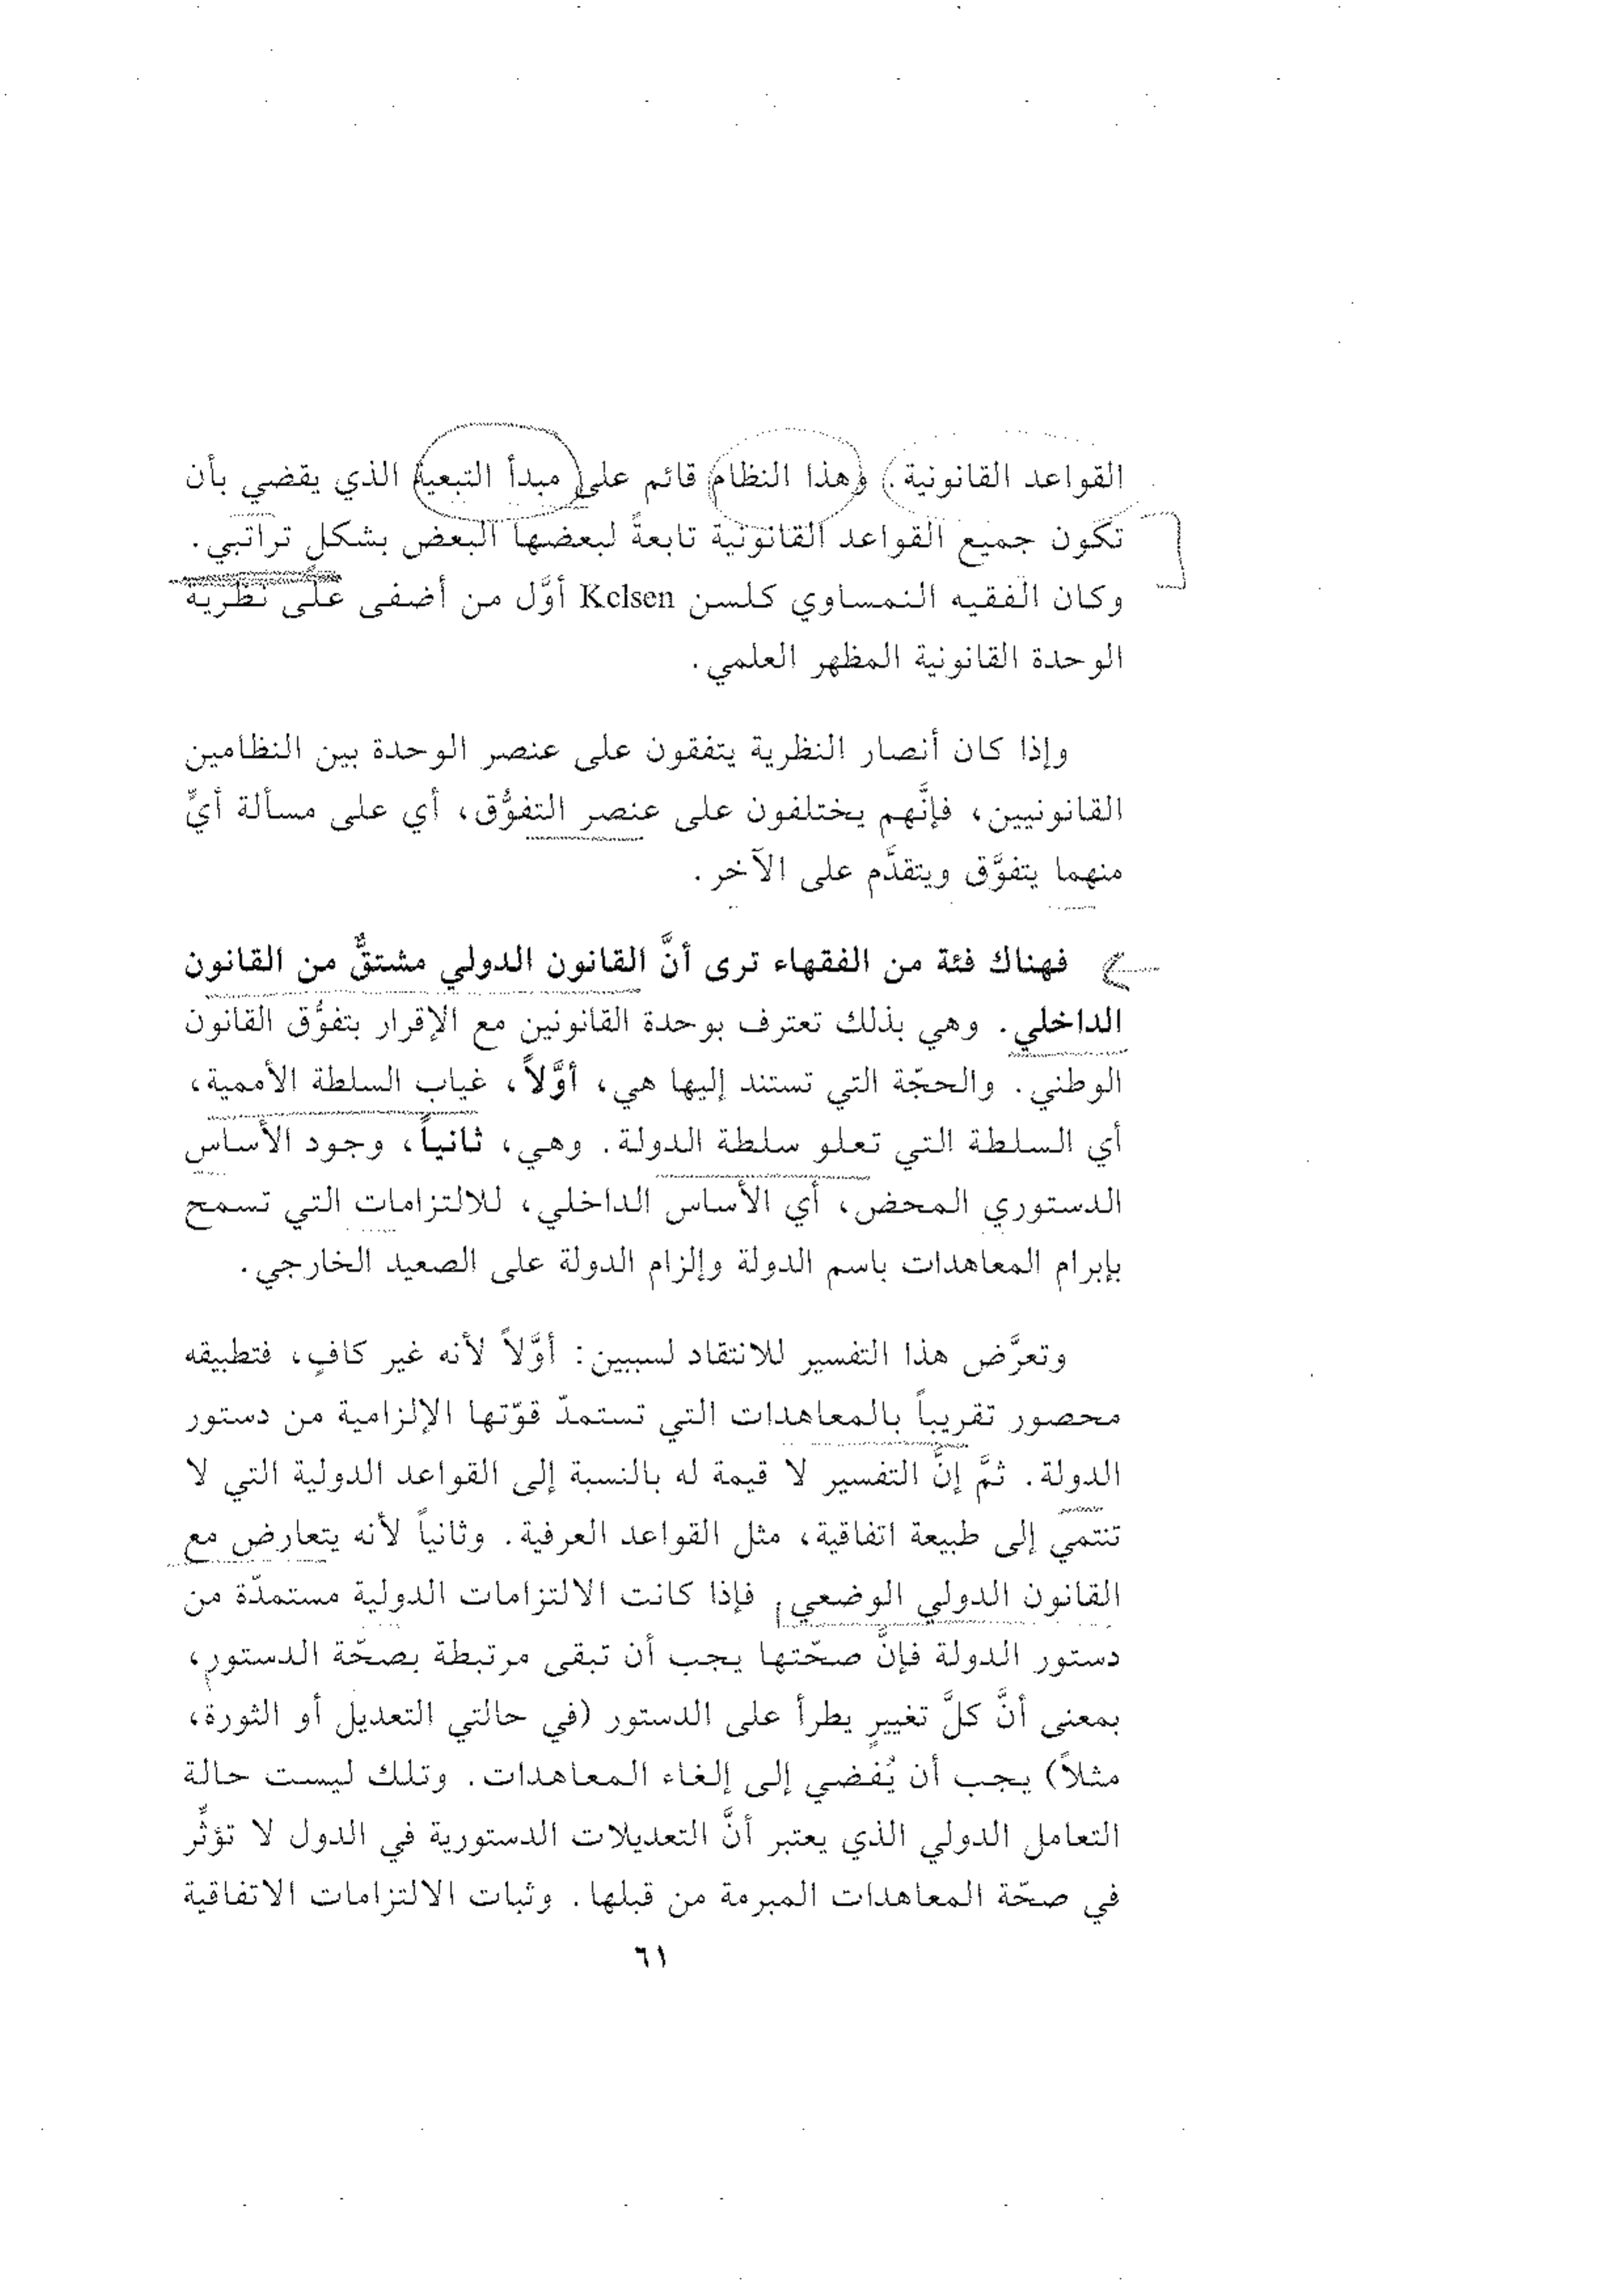 القواعد القانونية. وهذا النظام قائم على مبدأ التبعية الذي يقضي بأن
تكون جميع القواعد القانونية تابعةً لبعضها البعض بشكلٍ تراتبي.
وكان الفقيه النمساوي كلسن Kelsen أوَّل من أضفى على نظرية
الوحدة القانونية المظهر العلمي.
وإذا كان أنصار النظرية يتفقون على عنصر الوحدة بين النظامين
القانونيين، فإنَّهم يختلفون على عنصر التفوُّق، أي على مسألة أيٍّ
منهما يتفوَّق ويتقدَّم على الآخر.
فهناك فئة من الفقهاء ترى أنَّ القانون الدولي مشتقٌّ من القانون
الداخلي. وهي بذلك تعترف بوحدة القانونين مع الإقرار بتفوُّق القانون
الوطني. والحجّة التي تستند إليها هي، أوَّلاً، غياب السلطة الأممية،
أي السلطة التي تعلو سلطة الدولة. وهي، ثانياً، وجود الأساس
الدستوري المحض، أي الأساس الداخلي، للالتزامات التي تسمح
بإبرام المعاهدات باسم الدولة وإلزام الدولة على الصعيد الخارجي.
وتعرَّض هذا التفسير للانتقاد لسببين: أوَّلاً لأنه غير كافٍ، فتطبيقه
محصور تقريباً بالمعاهدات التي تستمدّ قوّتها الإلزامية من دستور
الدولة. ثمَّ إنَّ التفسير لا قيمة له بالنسبة إلى القواعد الدولية التي لا
تنتمي إلى طبيعة اتفاقية، مثل القواعد العرفية. وثانياً لأنه يتعارض مع
القانون الدولي الوضعي. فإذا كانت الالتزامات الدولية مستمدّة من
دستور الدولة فإنَّ صحّتها يجب أن تبقى مرتبطة بصحّة الدستور،
بمعنى أنَّ كلَّ تغييرٍ يطرأ على الدستور (في حالتي التعديل أو الثورة،
مثلاً) يجب أن يُفضي إلى إلغاء المعاهدات. وتلك ليست حالة
التعامل الدولي الذي يعتبر أنَّ التعديلات الدستورية في الدول لا تؤثِّر
في صحّة المعاهدات المبرمة من قبلها. وثبات الالتزامات الاتفاقية
٦١